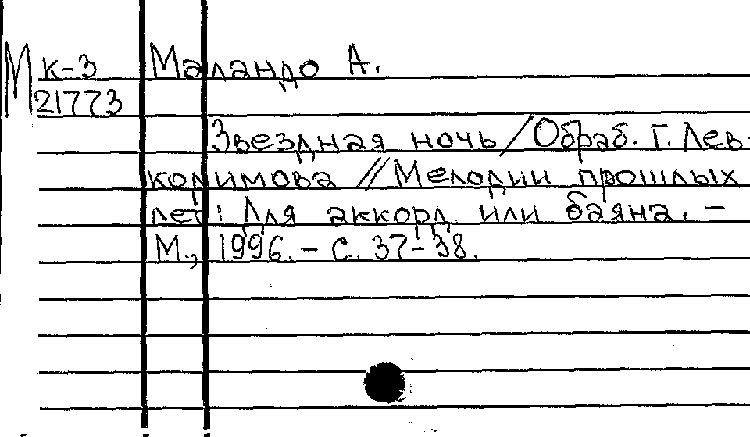 М к-3 Маландо А.
21773
Звездная ночь / Обраб. Г. Лев-
коримова // Мелодии прошлых
лет: Для аккорд. или баяна. –
М., 1996. – С. 37-38.